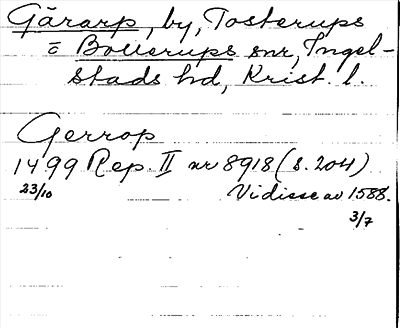 Gärarp, by, Tosterups
o Bollerups snr, Ingel-
stads hd, Krist. l.
Gerrop
1499 Rep. II nr 8918 (s. 204)
23/10 Vidisse av 1588.
3/7